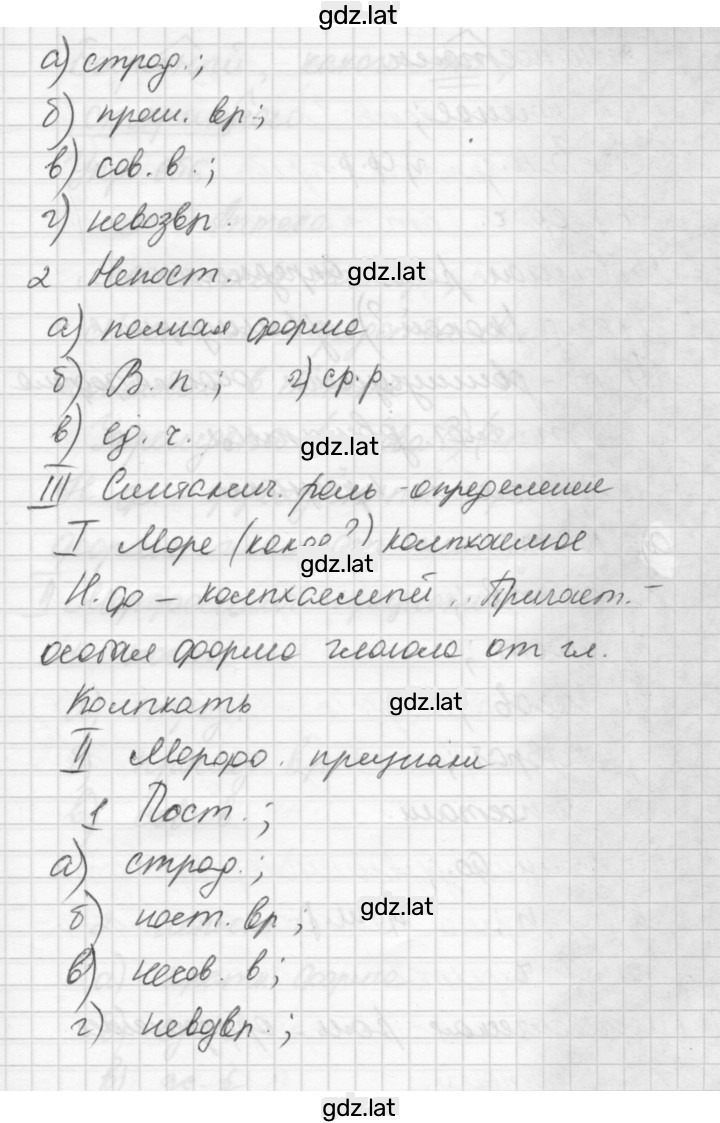 gdz.lat
а) страд.;
б) прош. вр.;
в) сов. в.;
г) невозвр.
2 Непост. gdz.lat
а) полная форма
б) В. п.; г) ср. р.
в) ед. ч. gdz.lat
III Синтаксич. роль - определение
I Море (какое?) колыхаемое
gdz.lat
Н. ф. – колыхаемый. Причаст. –
особая форма глагола от гл.
Колыхать gdz.lat
II Морфо. признаки
1 Пост.;
а) страд.;
б) наст. вр; gdz.lat
в) несов. в;
г) невозвр.;
gdz.lat